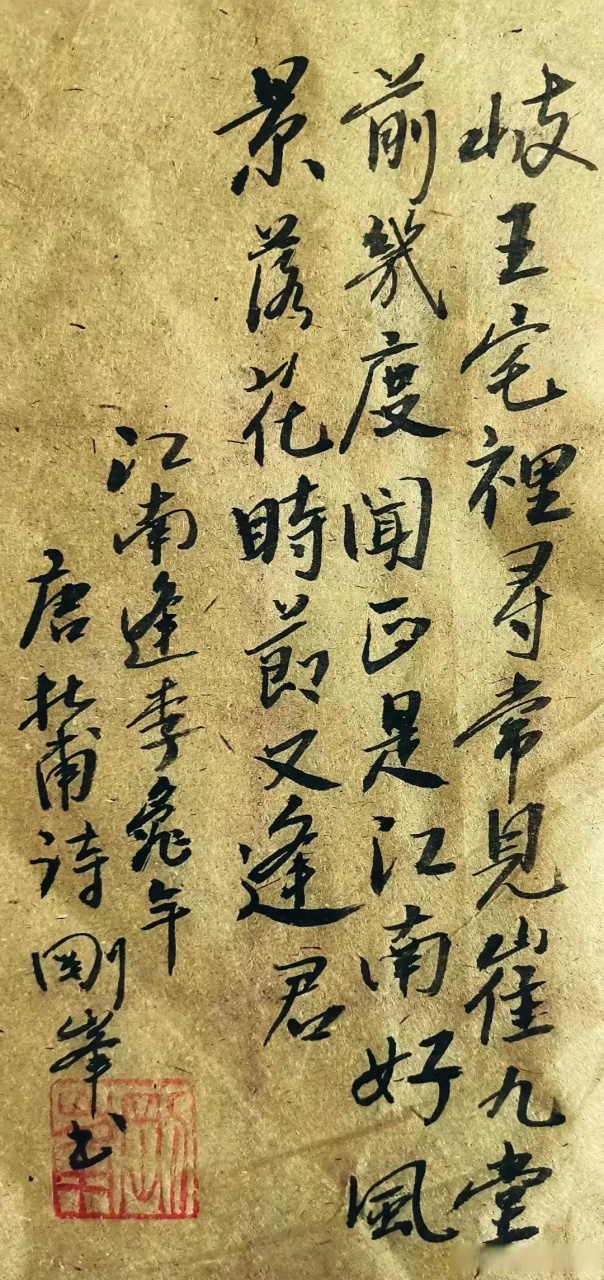 岐王宅裡尋常見崔九堂
前幾度聞正是江南好風
景落花時節又逢君
江南逢李龜年
唐杜甫詩剛峯书